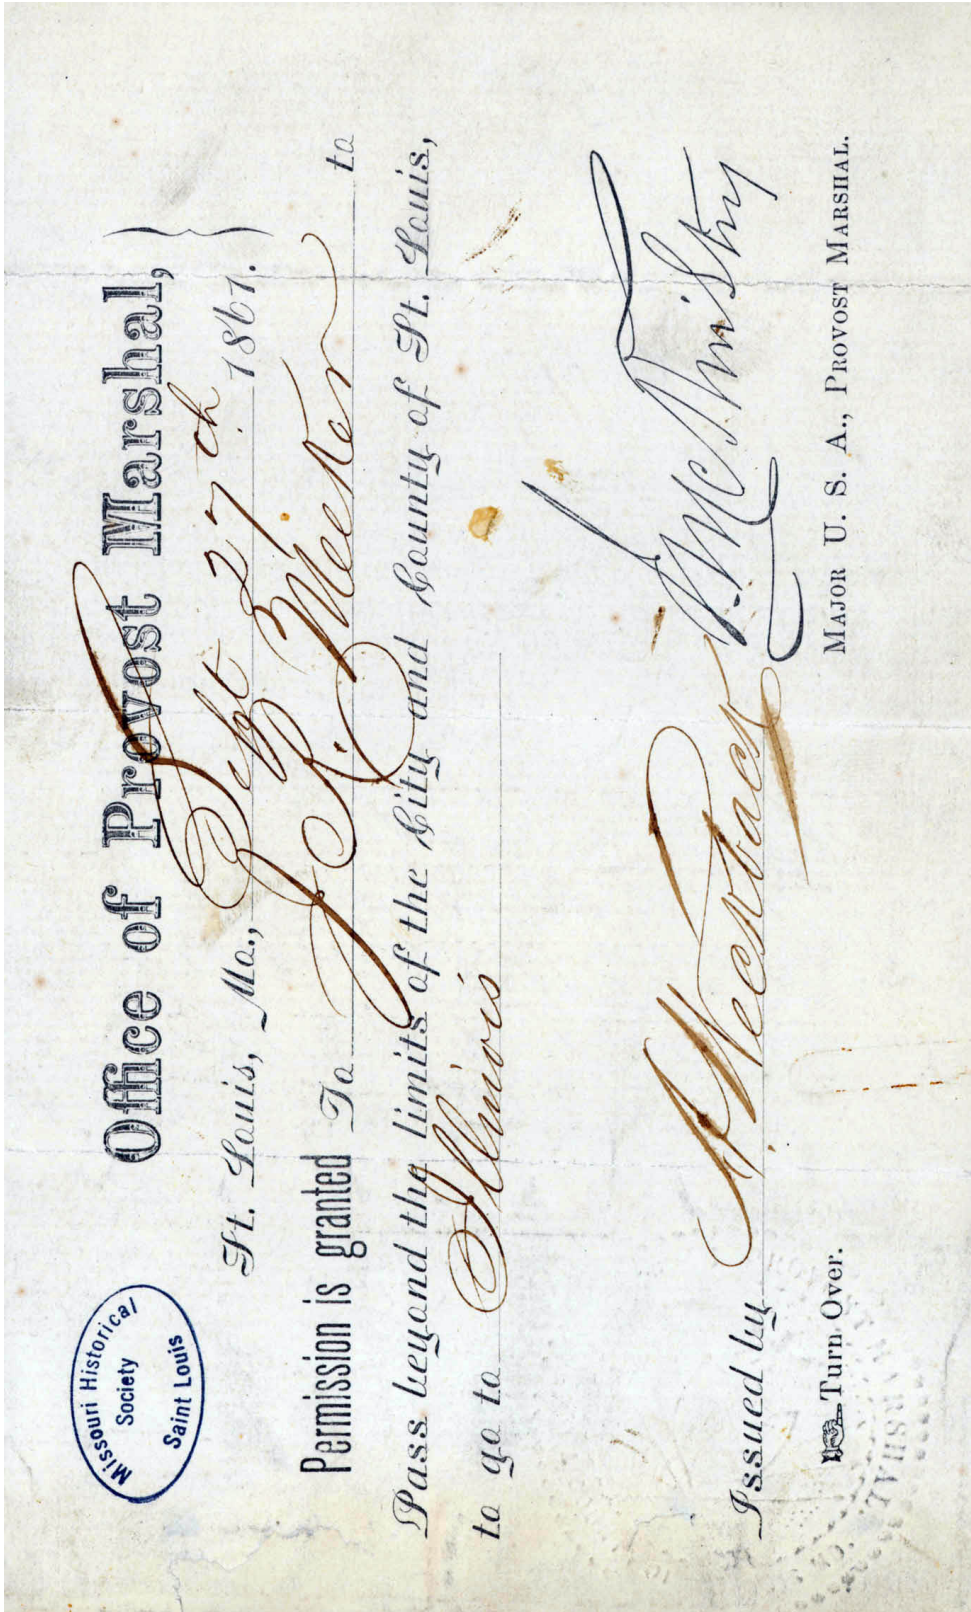 Missouri Historical
Society
Saint Louis
Office of Provost Marshal,
St. Louis, Mo., Sept 27th 1861.
Permission is granted To J. R. Meeker to
Pass beyond the limits of the City and County of St. Louis,
to go to Illinois
Issued by
J. McKinstry
Turn Over.
MAJOR U. S. A., PROVOST MARSHAL.
MARSHAL